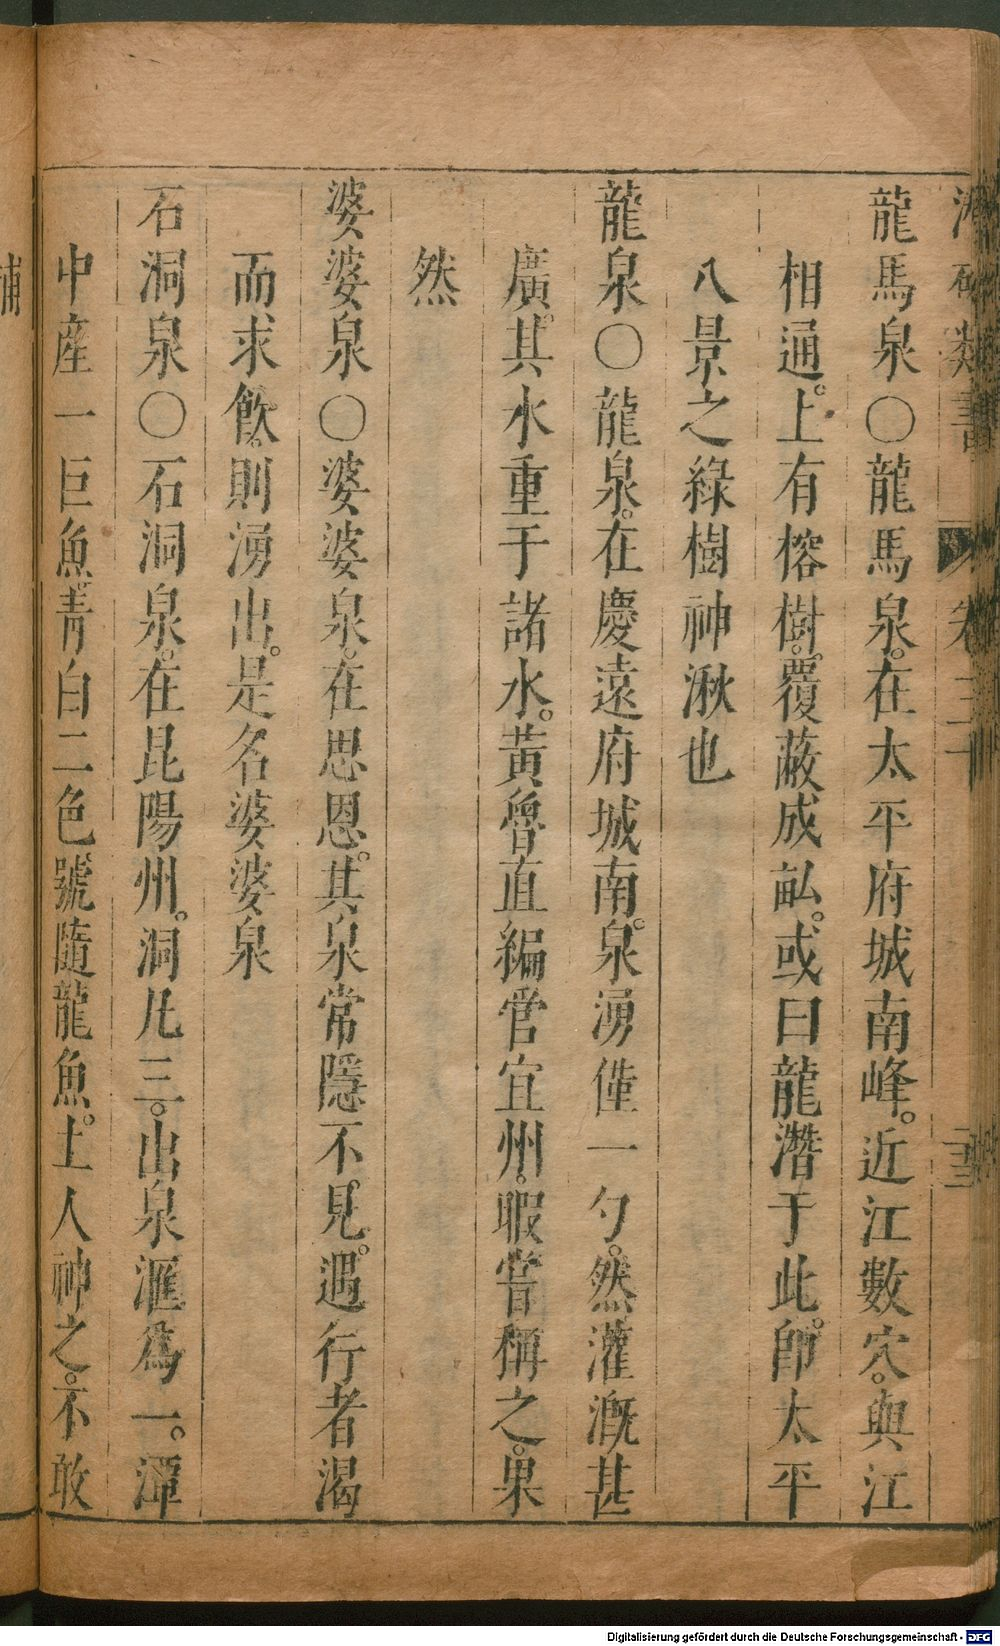 類書 卷三十
龍馬泉○龍馬泉。在太平府城南峰。近江數穴。與江
相通。上有榕樹。覆蔽成畝。或曰龍潛于此。師太平
八景之綠樹神湫也
龍泉○龍泉。在慶遠府城南。泉湧僅一勺。然灌漑甚
廣。其水重于諸水。黃魯直編管宜州。暇嘗稱之。果
然
婆婆泉○婆婆泉。在思恩。其泉常隱不見。遇行者渴
而求飲。則湧出。是名婆婆泉
石洞泉○石洞泉。在昆陽州。洞凡三。出泉滙爲一。潭
中產一巨魚。青白二色號隨龍魚。土人神之。不敢
Digitalisierung gefördert durch die Deutsche Forschungsgemeinschaft - DFG